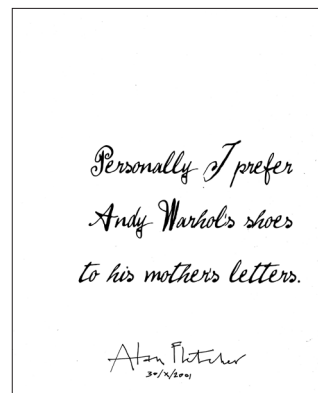 Personally I prefer
Andy Warhol's shoes
to his mother's letters.
Alan Fletcher
30/X/2001